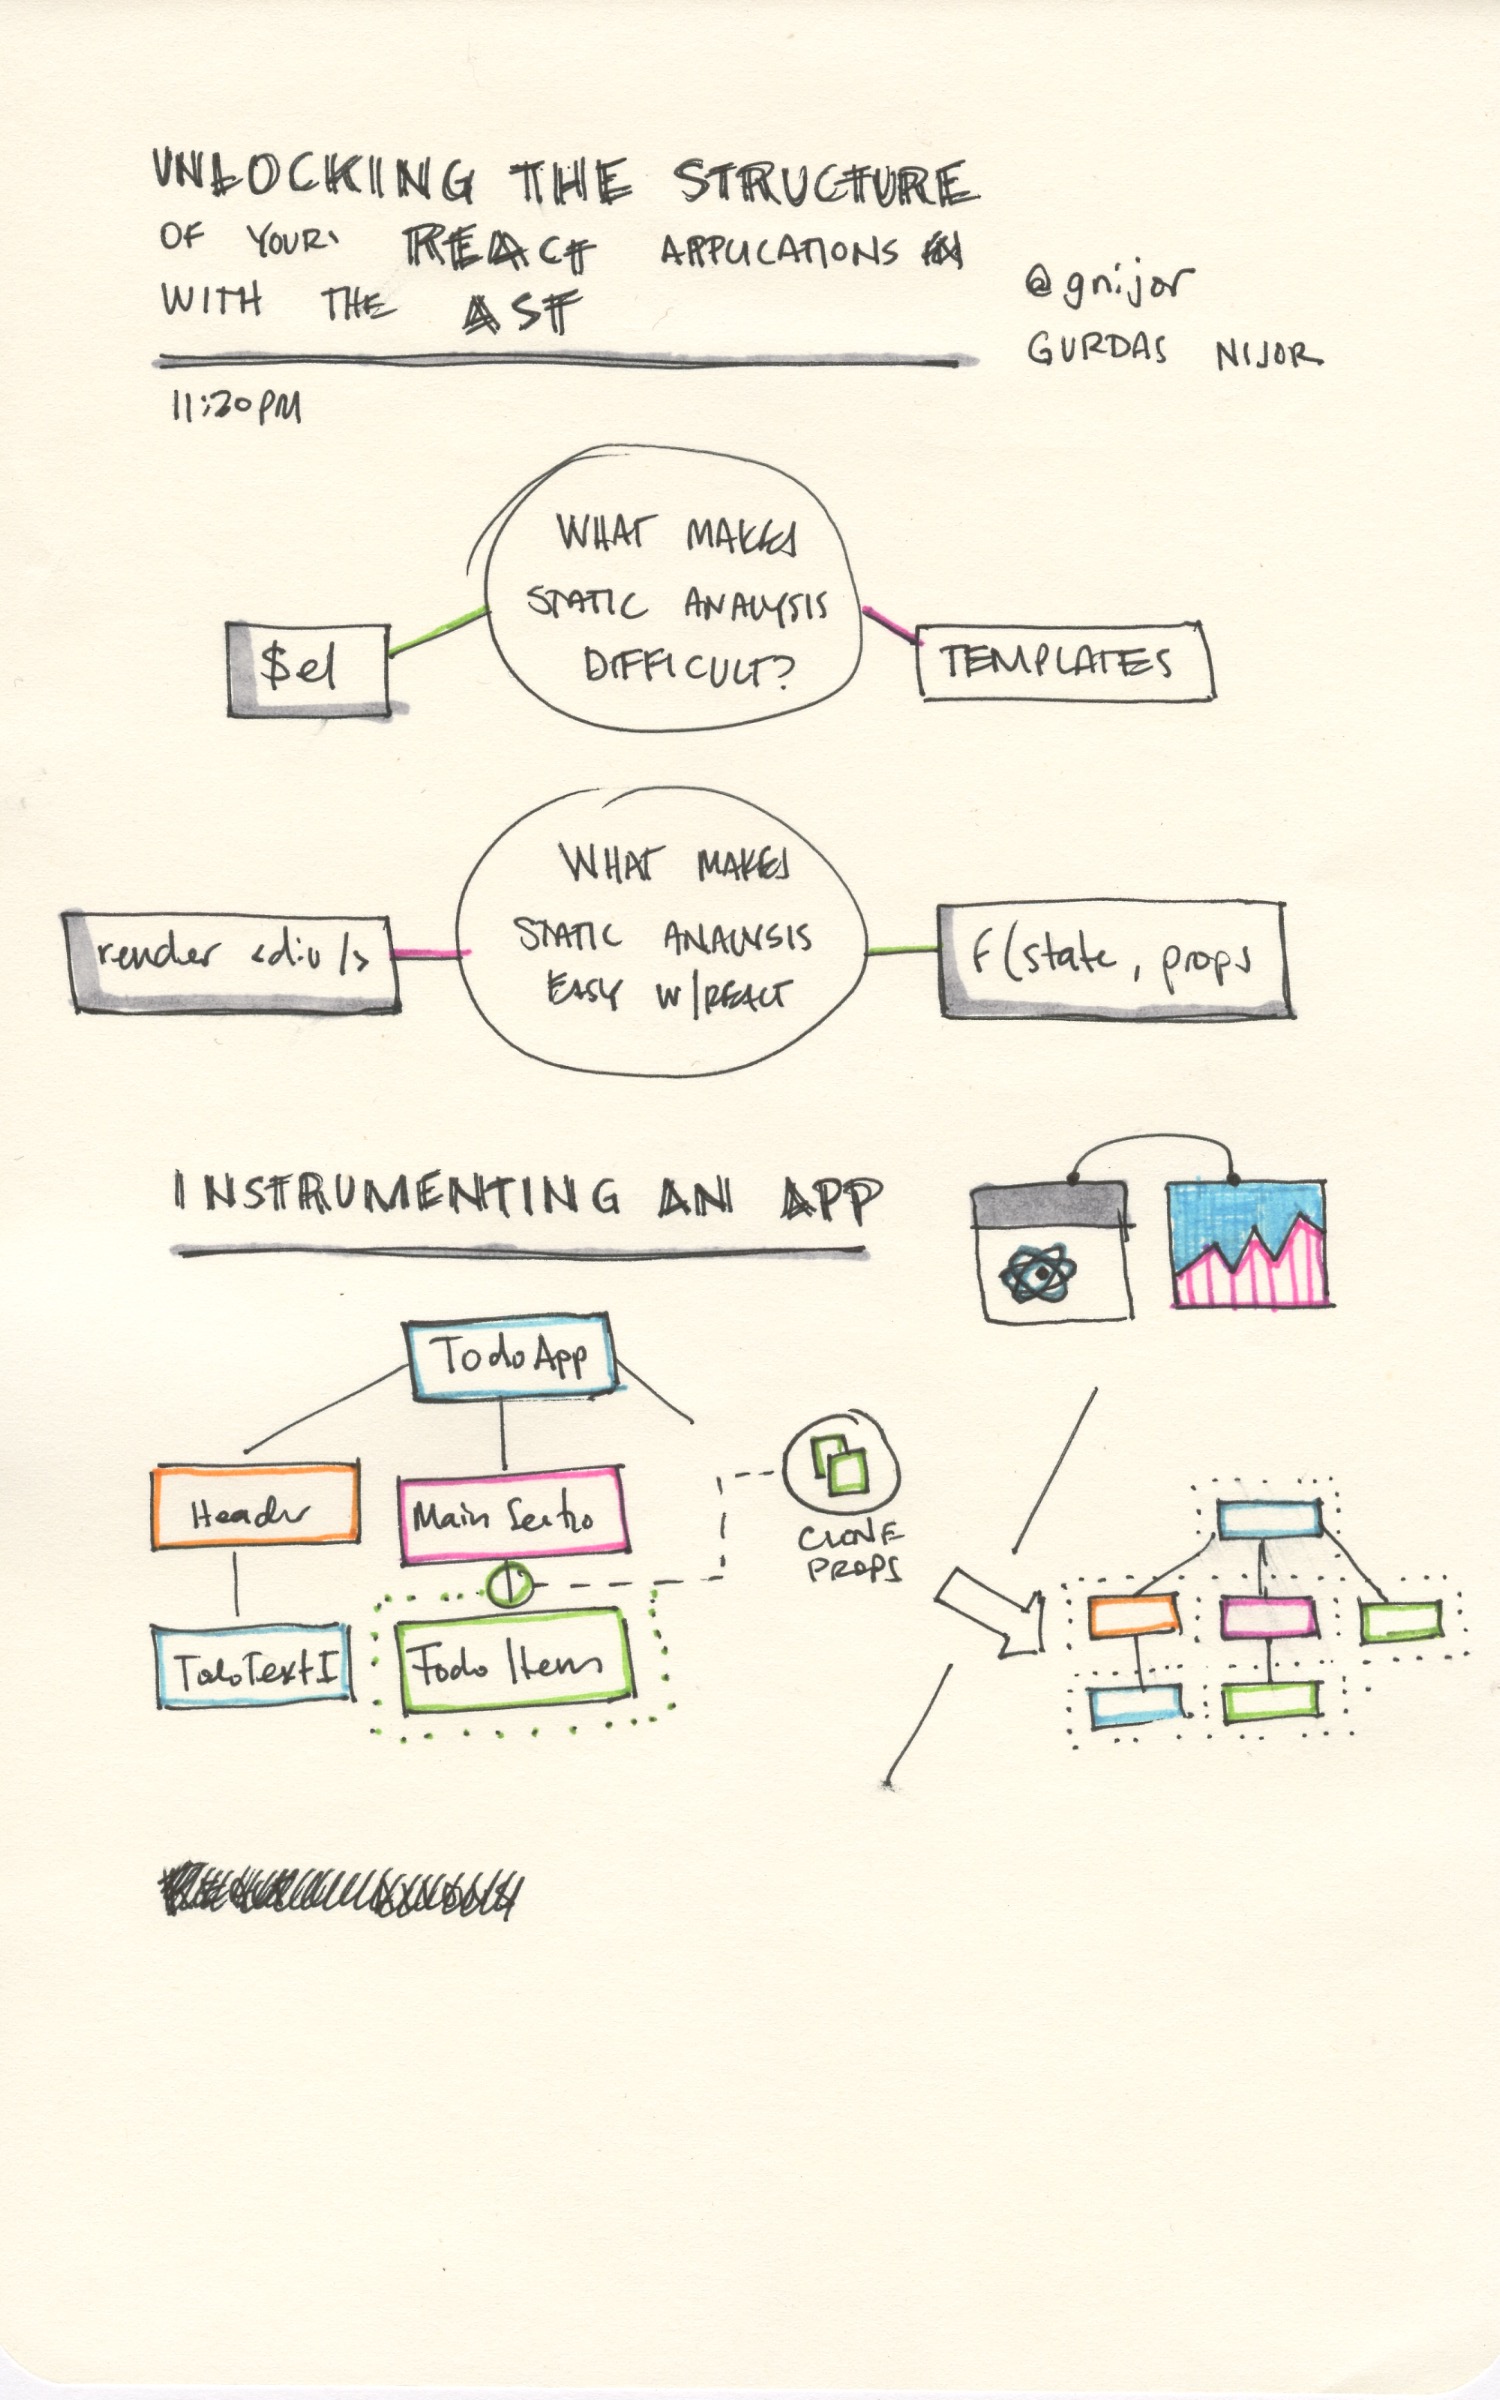 UNLOCKING THE STRUCTURE
OF YOUR REACT APPLICATIONS
WITH THE AST
@gnijor
GURDAS NIJOR
11:20PM
WHAT MAKES
STATIC ANALYSIS
DIFFICULT?
$el
TEMPLATES
WHAT MAKES
STATIC ANALYSIS
EASY W/REACT
render <div/>
f(state, props
INSTRUMENTING AN APP
TodoApp
Header
Main Sectio
CLONE
PROPS
TodoTextI
Todo Item